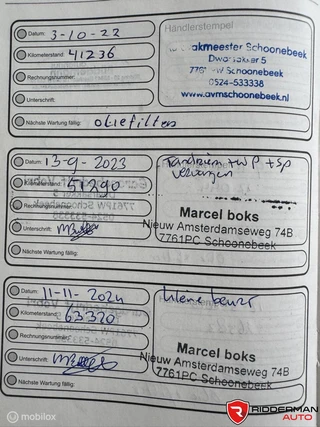 Datum: 3-10-22
Händlerstempel
Kilometerstand: 41236
akmeester Schoonebeek
Rechnungsnummer:
Unterschrift:
0524-533338
www.avmschoonebeek.nl
Nächste Wartung fällig: oliefilter
Datum: 13-9-2023
Kilometerstand: 51290
vervangen
Rechnungsnummer:
Unterschrift:
Marcel boks
Nieuw Amsterdamseweg 74B
7761PC Schoonebeek
Nächste Wartung fällig:
Datum: 11-11-2024
Kilometerstand: 63320
kleine beurt
Rechnungsnummer:
Unterschrift:
Marcel boks
Nieuw Amsterdamseweg 74B
7761PC Schoonebeek
Nächste Wartung fällig:
mobilox
RIDDERMAN
AUTO